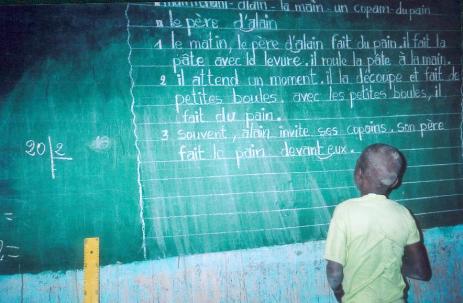 alain - la main - un copain - du pain
II le père d'alain
1 le matin, le père d'alain fait du pain. il fait la
pâte avec la levure. il roule la pâte à la main.
2 il attend un moment. il la découpe et fait de
petites boules. avec les petites boules, il
fait du pain.
3 souvent, alain invite ses copains. son père
fait le pain devant eux.
20 2
=
2=